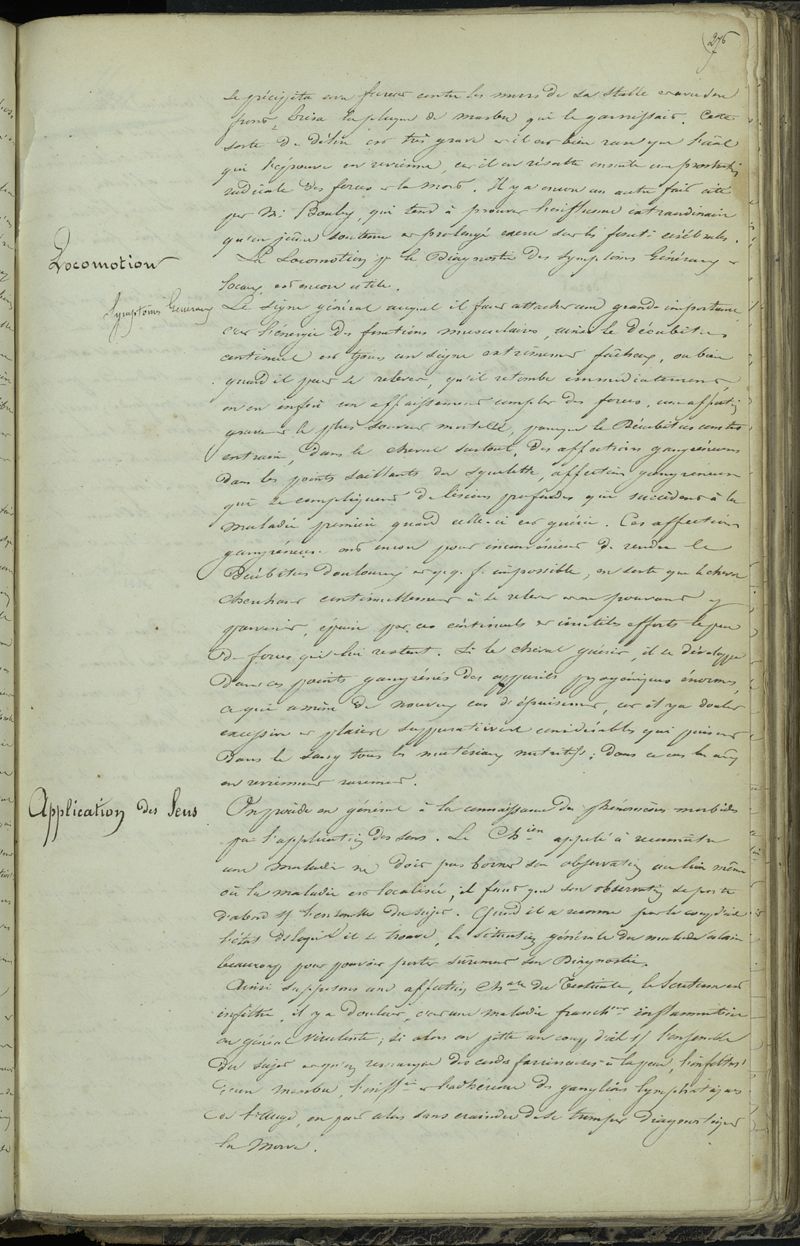 276
se précipita avec fureur contre les murs de sa stalle et avec son
front brisa la plaque de marbre qui le garnissait. Cette
sorte de délire est très grave et il est bien rare que l'animal
qui l'éprouve en revienne, car il en résulte ensuite une prostration
radicale des forces et la mort. Il y a encore un autre fait cité
par Mr Bouley, qui tend à prouver l'influence extraordinaire
qu'un jeûne soutenu et prolongé exerce sur les fonct. cérébrales.
Locomotion
La Locomotion pr le Diagnostic des symptômes Généraux et
locaux, est encore utile.
Symptômes Généraux
Le signe général auquel il faut attacher une grande importance
c'est l'énergie des fonctions musculaires, ainsi le décubitus
continuel est tjours un signe extrêmement fâcheux, ou bien
quand il peut se relever, qu'il retombe immédiatement
on en infère un affaissement complet des forces, une affection
grave et le plus souvent mortelle, parceque le Décubitus constant
entraine, dans le cheval surtout, des affections gangréneuses
dans les points saillants du squelette, affections gangréneuses
qui se compliquent de lésions profondes qui succèdent à la
maladie première quand celle-ci est guérie. Ces affections
gangréneuses ont encore pour inconvénient de rendre le
Décubitus douloureux et q.q. f. impossible, en sorte que le cheval
cherchant continuellement à se relever et ne pouvant y
parvenir, épuise par ces continuels et inutiles efforts le peu
de forces qui lui restent. Si le cheval guérit, il se développe
dans ces points gangrénés des appareils pyogéniques énormes,
ce qui amène de nouveau cas d'épuisement, car il y a douleur
excessive et plaies suppuratives considérables qui puisent
dans le sang tous les matériaux nutritifs; dans ce cas les anx
en reviennent rarement.
Application des Sens
On procède en général à la connaissance des phénomènes morbides
par l'application des sens. Le Chien appelé à reconnaître
une maladie ne doit pas borner son observation au lieu même
où la maladie est localisée, il faut que son observation se porte
d'abord sr l'ensemble du sujet. Quand il a reconnu par le coup d'œil
l'état ds lequel il se trouve, la situation générale du malade éclaire
beaucoup pour pouvoir porter sûrement son Diagnostic.
Ainsi supposons une affection Chque du Testicule, le Scrotum est
infiltré, il y a douleur, c'est une maladie franchmt inflammatoire
en général virulente; si alors on jette un coup d'œil sr l'ensemble
du sujet et qu'on remarque des cordes farcineuses à la peau, l'infiltron
d'un membre, l'infffon et l'adhérence des ganglions lymphatiques
de l'auge, on peut alors sans craindre de se tromper diagnostiquer
la Morve.